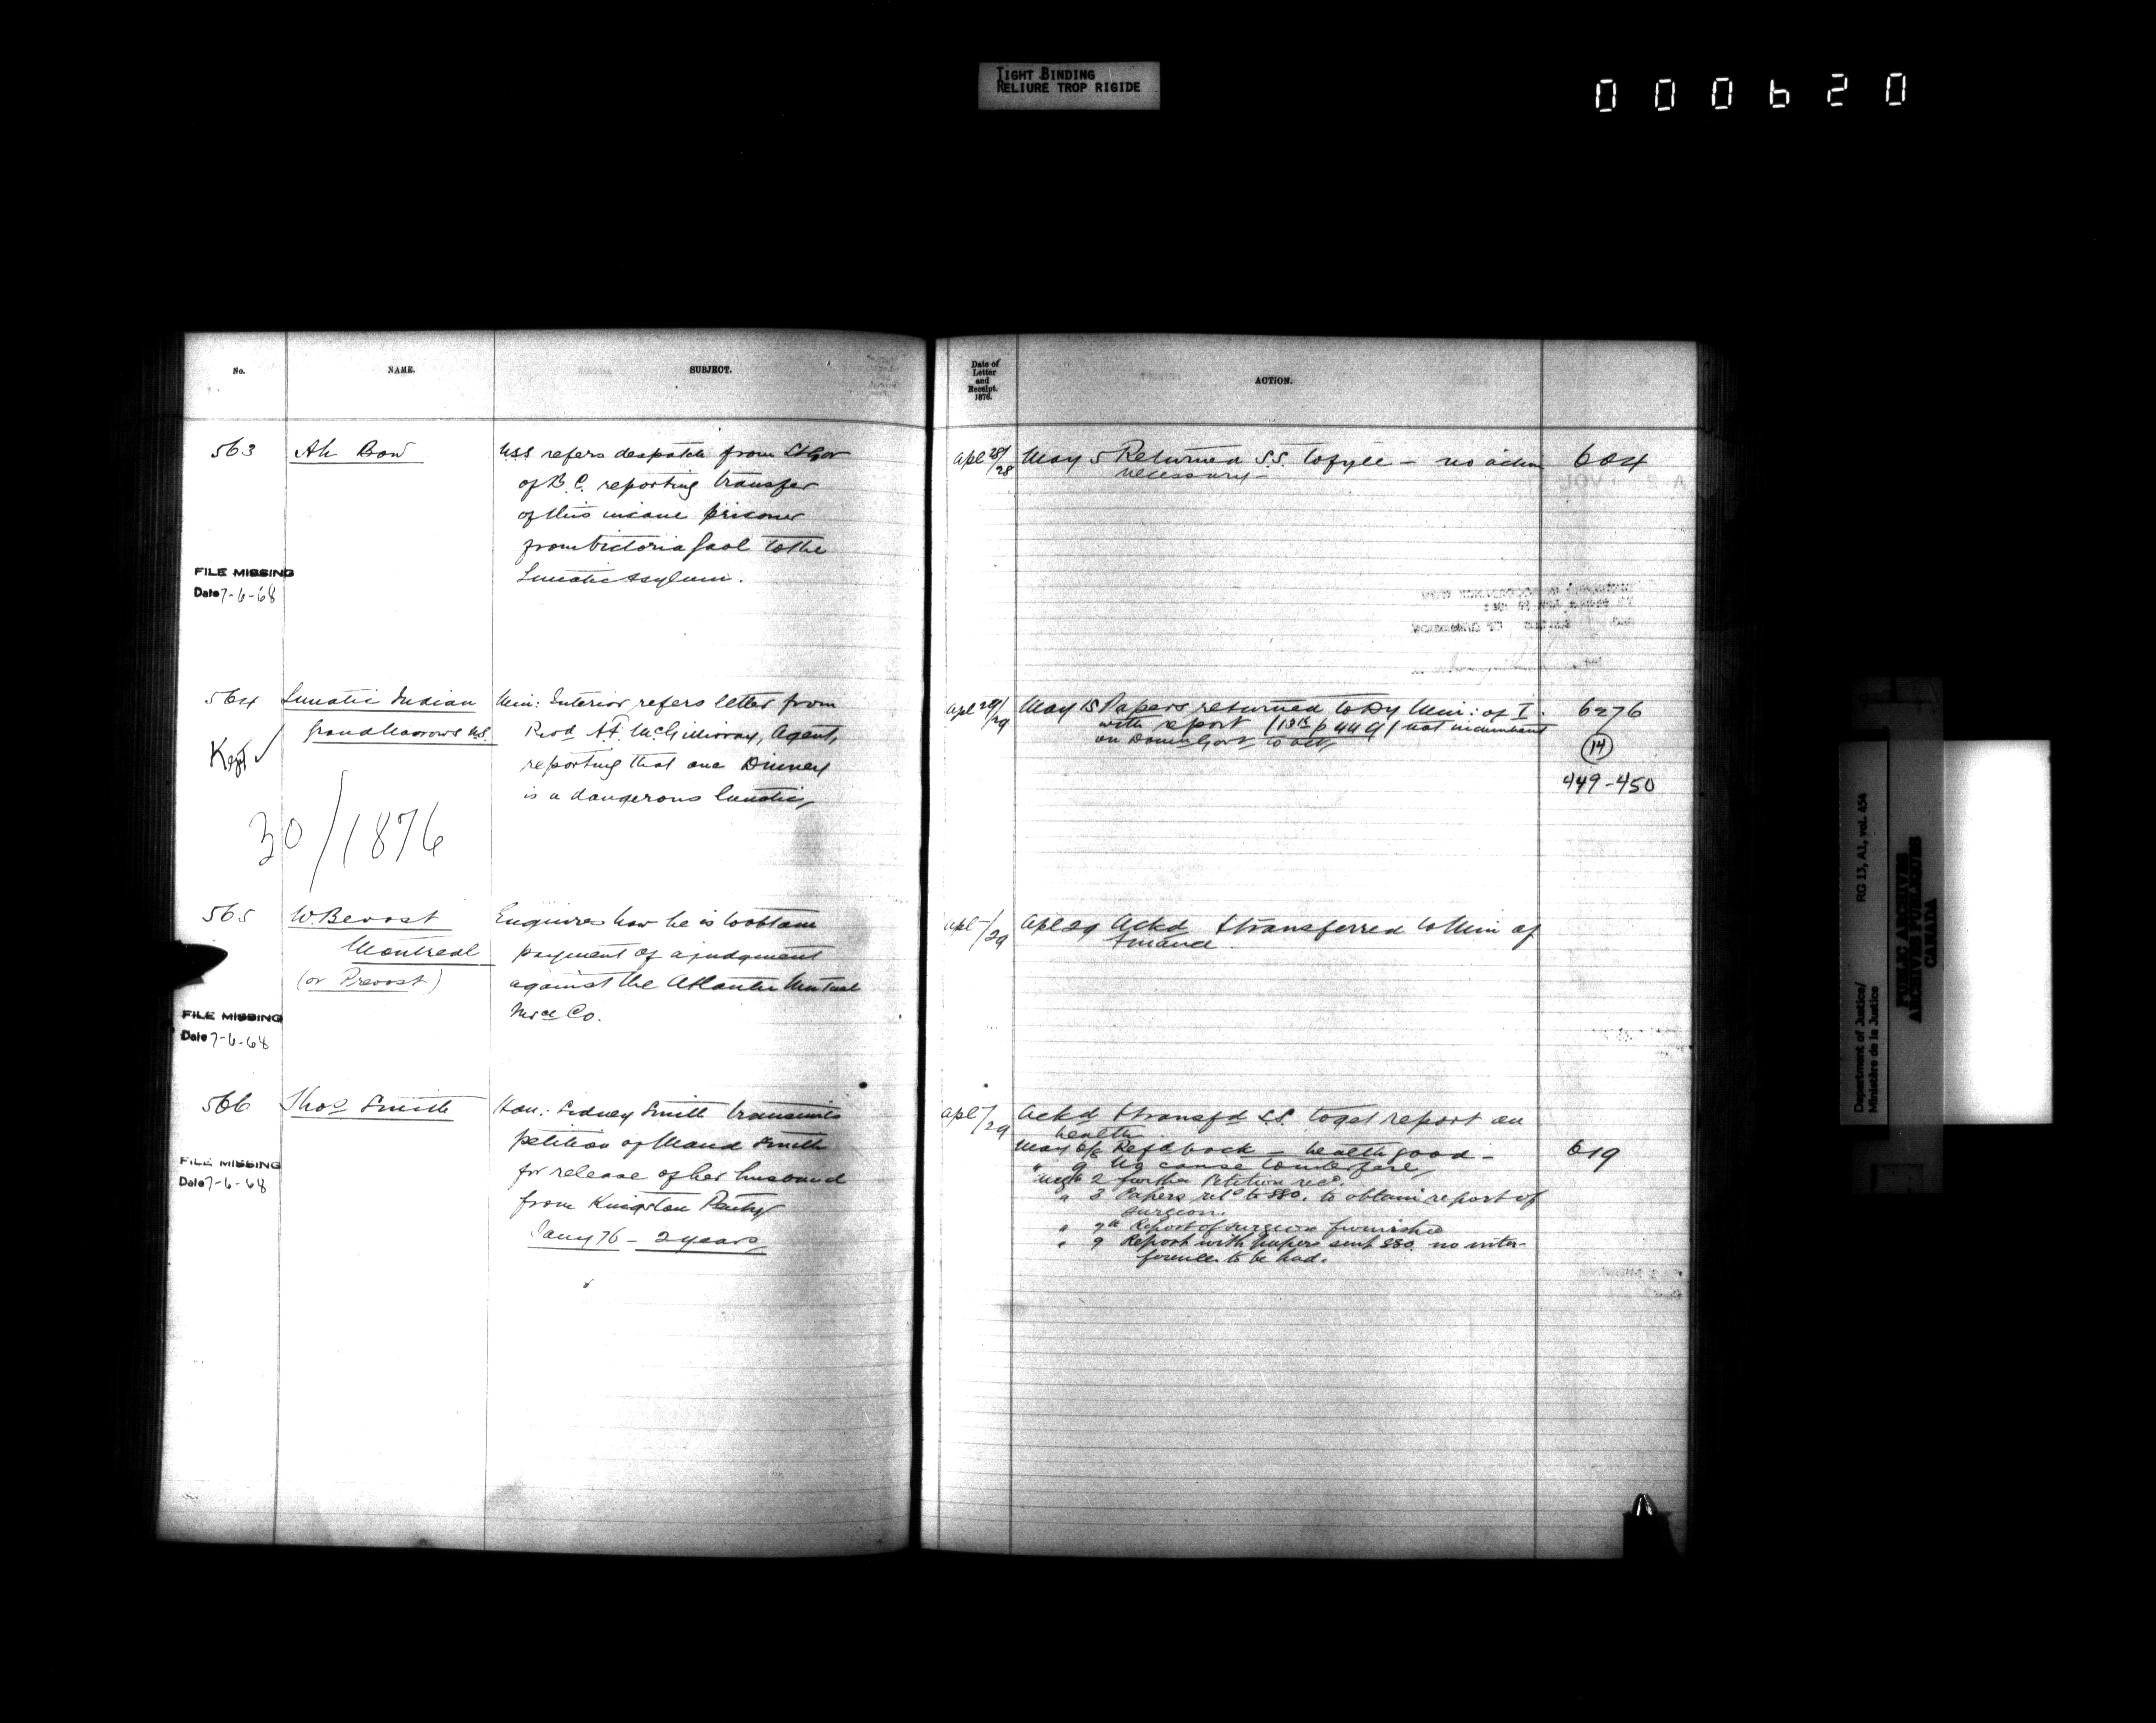 TIGHT BINDING
RELIURE TROP RIGIDE
000620
No.
NAME.
SUBJECT.
Date of
Letter
and
Receipt.
1876.
ACTION.
563
Ah Bow
USS refers despatch from Lt Gov
of B.C. reporting transfer
of this insane prisoner
from Victoria Gaol to the
Lunatic Asylum.
FILE MISSING
Date 7-6-68
Apl 28/28
May 5 Returned S.S. to fyle - no action
necessary -
604
564
Lunatic Indian
Grand Narrows N.S.
Kept ✓
30/1876
Min: Interior refers letter from
Revd A.F. McGillivray, Agent,
reporting that one
is a dangerous lunatic,
Apl 28/29
May 15 Papers returned to Dy Min: of I.
with report (13 p 449) not incumbent
on Domn Govt to act,
6276
14
449-450
565
W. Bevost
Montreal
(or Prevost)
Enquires how he is to obtain
payment of a judgment
against the Atlantic Mutual
Co.
FILE MISSING
Date 7-6-68
Apl -/29
Apl 29 Ackd & transferred to Min of
Finance.
566
Thos Smith
Hon: Sidney Smith transmits
petition of Maud Smith
for release of her husband
from Kingston Penty
Jany 76 - 2 years
FILE MISSING
Date 7-6-68
Apl -/29
Ackd & transfd S.S. to get report on
health
May 6/8 Refd back - health good -
" 9 No cause to interfere,
Augt 2 further Petition recd.
" 3 Papers retd to SSO. to obtain report of
surgeon.
" 7th Report of surgeon furnished
" 9 Report with papers sent SSO. no inter-
ference to be had.
619
Department of Justice/
Ministère de la Justice
RG 13, A1, vol. 454
PUBLIC ARCHIVES
ARCHIVES PUBLIQUES
CANADA